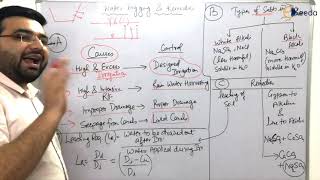 Water Logging & Remedies
Causes
Control
High & Excess Irrigation
Designed Irrigation
High & Intensive R/f
Rain Water Harvesting
Improper Drainage
Proper Drainage
Seepage from Canals
Lined Canals
Leaching Req. (LR) = Water to be drained out
Water Applied during Irr
LR = Dd / Di
B
Types of Salts in
White Alkali
NaSO4, NaCl
(less Harmful)
Soluble in H2O
Black Alkali
Na2CO3
(more Harmful)
Soluble in H2O
C
Remedies
Leaching of Soil
Gypsum to Alkaline
Lime to Acidic
Na2CO3 + CaSO4
CaCO3
Na2SO4
Keeda